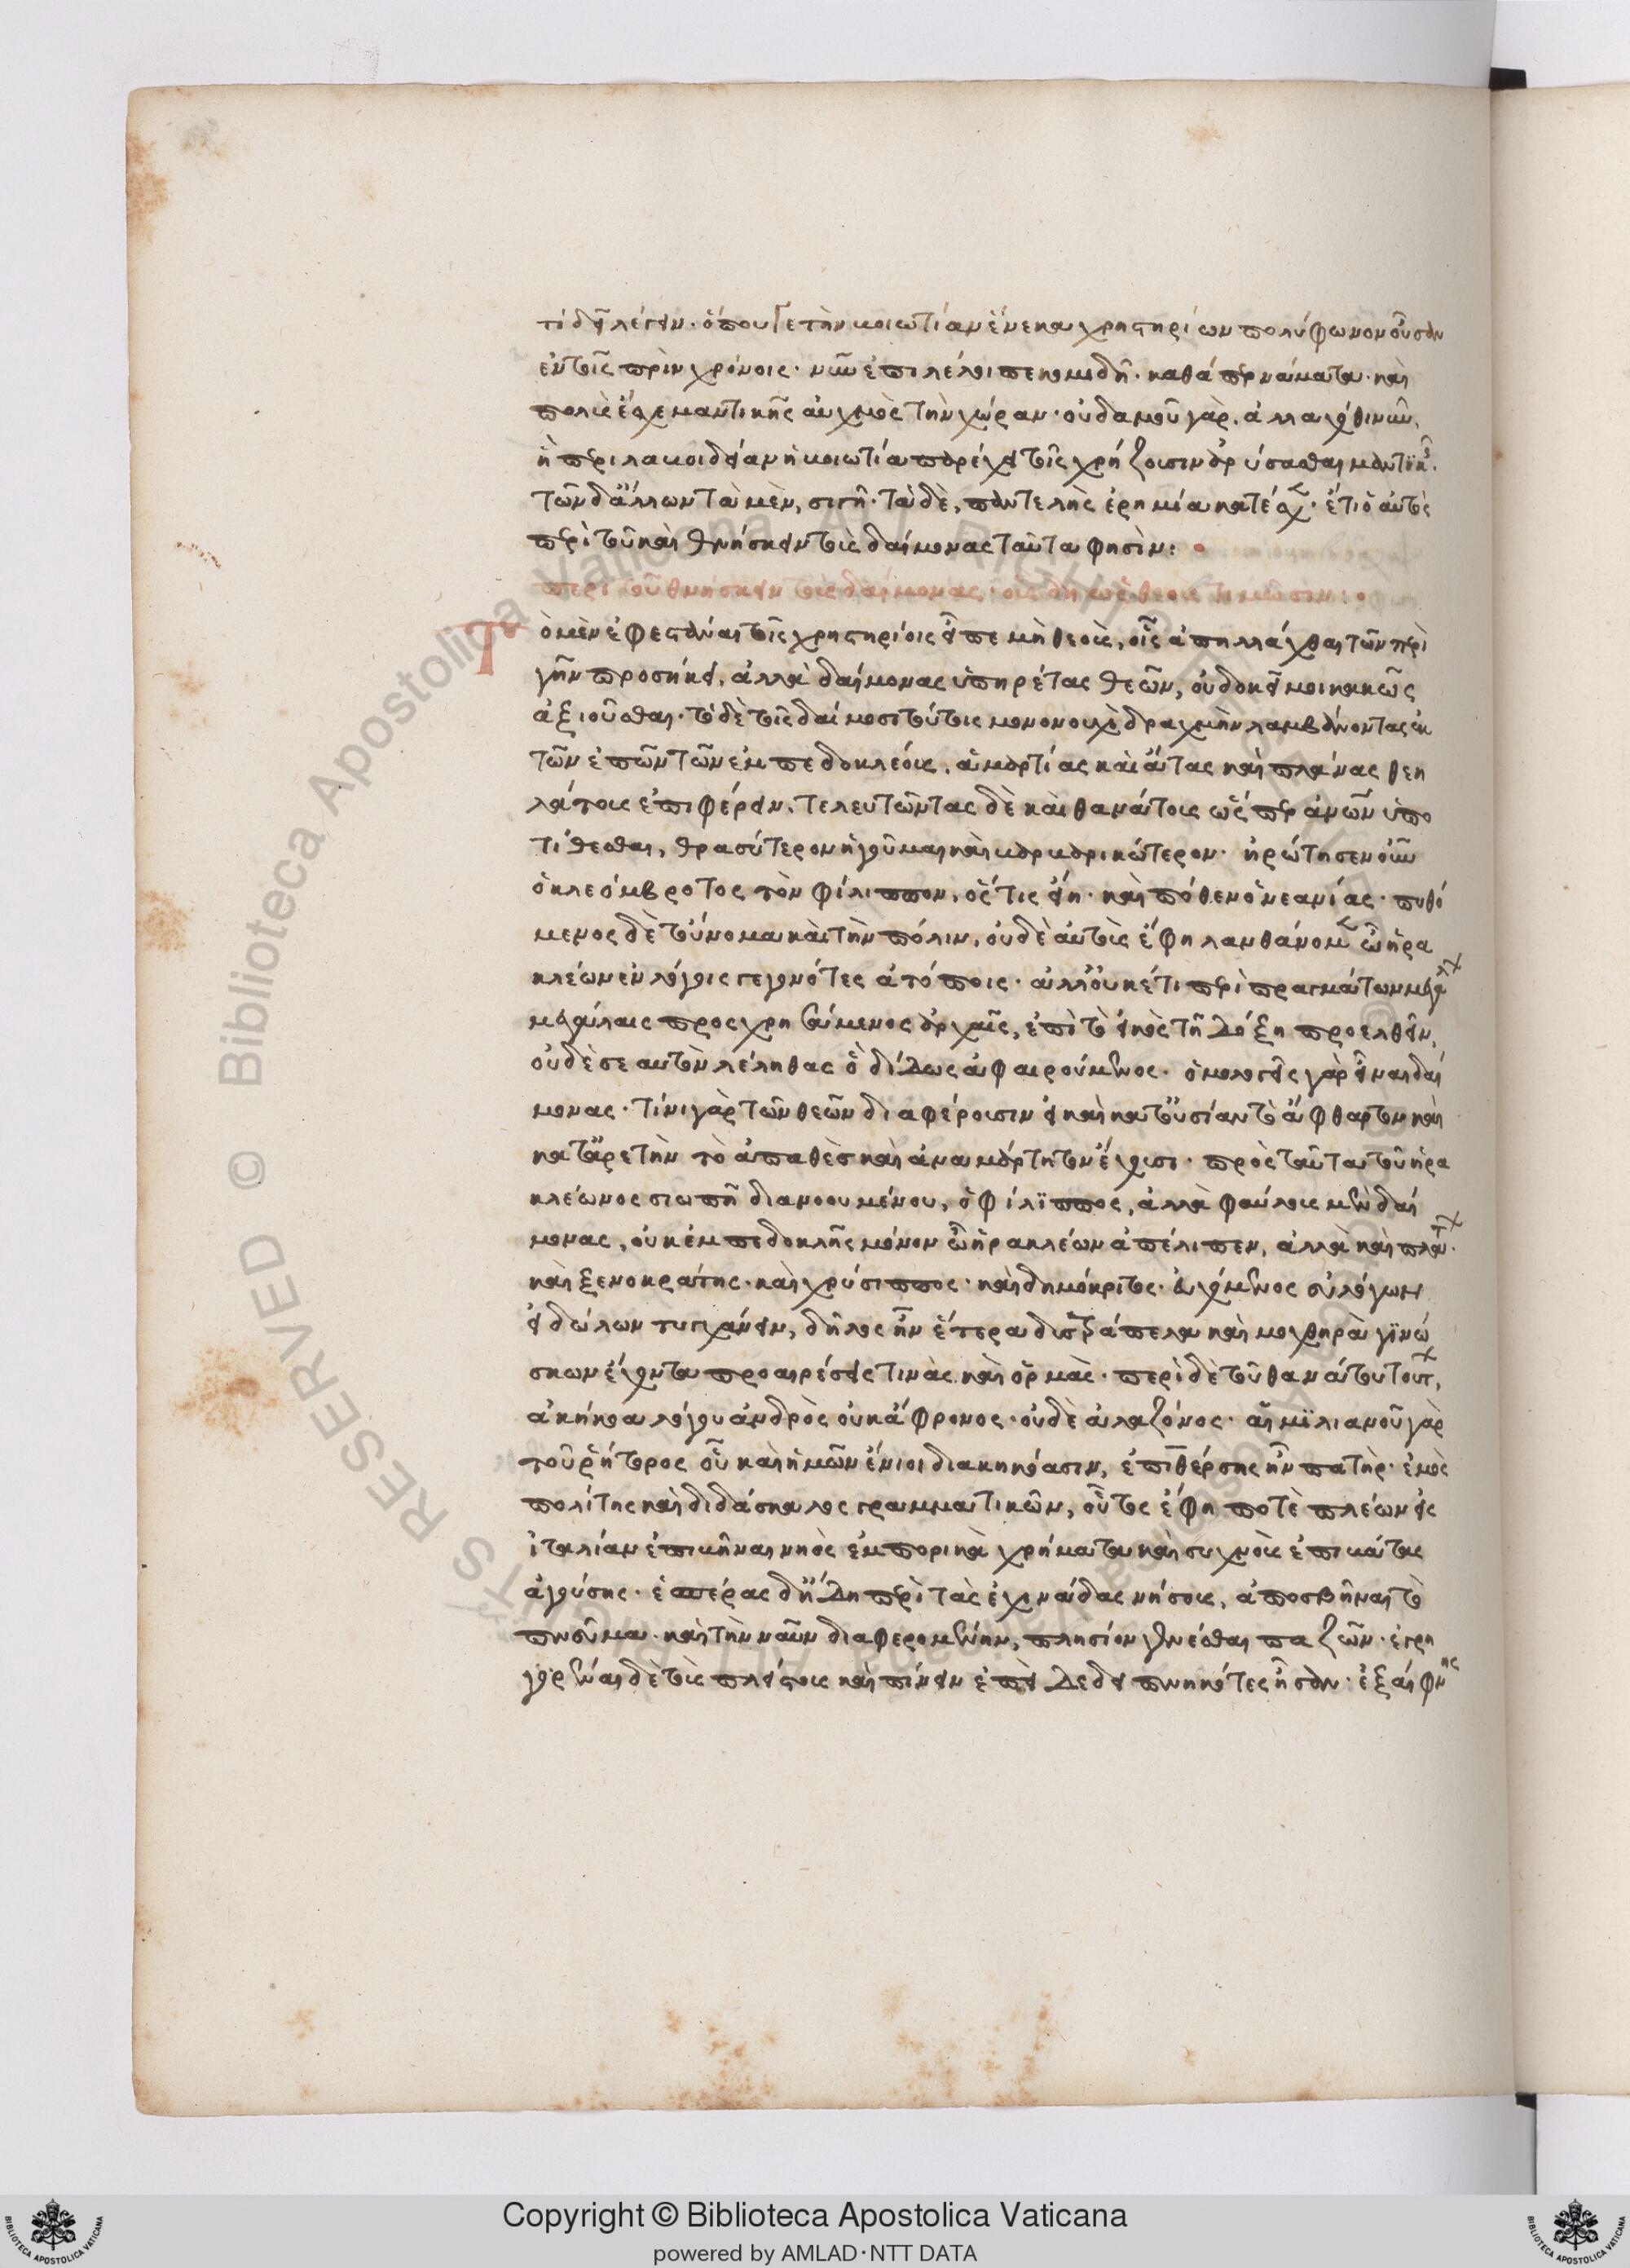 τί δεῖ λέγειν. ὅπου γε τὴν βοιωτίαν ἕνεκα χρηστηρίων πολύφωνον οὖσαν
ἐν τοῖς πρὶν χρόνοις. νῦν ἐπιλέλοιπε κομιδῆ. καθάπερ νάματα. καὶ
πολὺς ἔσχε μαντικῆς αὐχμὸς τὴν χώραν. οὐδαμοῦ γὰρ. ἀλλαχόθι νῦν,
ἢ περὶ λαβοίδειαν ἡ βοιωτία παρέχει τοῖς χρήζουσιν ἀρύσασθαι μαντικῆς.
τῶν δ' ἄλλων τὰ μὲν, σιγὴ. τὰ δὲ, παντελὴς ἐρημία κατέσχε. ἔτι ὁ αὐτὸς
περὶ τοῦ καὶ θνήσκειν τοὺς δαίμονας ταῦτα φησὶν:
περὶ τοῦ θνήσκειν τοὺς δαίμονας, οὓς δὴ ὡς θεοὺς τιμῶσιν:
Τὸ μὲν ἐφεστάναι τοῖς χρηστηρίοις εἶπε μὴ θεοὺς, οἷς ἀπηλλάχθαι τῶν περὶ
γῆν προσήκει, ἀλλὰ δαίμονας ὑπηρέτας θεῶν, οὐ δοκεῖ μοι κακῶς
ἀξιοῦσθαι. τὸ δὲ τοῖς δαίμοσι τούτοις μονονουχὶ δραχμὴν λαμβάνοντας ἐκ
τῶν ἐπῶν τῶν ἐμπεδοκλέους, ἁμαρτίας καὶ ἄτας καὶ πλάνας θεη
λάτους ἐπιφέρειν. τελευτῶντας δὲ καὶ θανάτους ὥσπερ ἀνῶν ὑπο
τίθεσθαι, θρασύτερον ἡγοῦμαι καὶ βαρβαρικώτερον. ἠρώτησεν οὖν
ὁ κλεόμβροτος τὸν φίλιππον, ὅς τις εἴη. καὶ πόθεν ὁ νεανίας. πυθό
μενος δὲ τοὔνομα καὶ τὴν πόλιν, οὐδὲ αὐτοὺς ἔφη λανθάνομεν ὦ ἡρα
κλέων ἐν λόγοις γεγονότες ἀτόποις. ἀλλ' οὐκέτι περὶ πραγμάτων μεγάλων
μεγάλαις προσχρησάμενος ἀρχαῖς, ἐπὶ τὸ εἰκὸς τῇ δόξη προελθεῖν,
οὐδὲ σεαυτὸν λέληθας ὃ δίδως ἀφαιρούμενος. ὁμολογεῖς γὰρ εἶναι δαί
μονας. τίνι γὰρ τῶν θεῶν διαφέρουσιν εἰ καὶ κατ' οὐσίαν τὸ ἄφθαρτον καὶ
κατ' ἀρετὴν τὸ ἀπαθὲς καὶ ἀναμάρτητον ἔχουσι. πρὸς ταῦτα τοῦ ἡρα
κλέωνος σιωπῆ διανοουμένου, ὁ φίλιππος, ἀλλὰ φαύλους μὲν δαί
μονας, οὐκ ἐμπεδοκλῆς μόνον ὦ ἡρακλέων ἀπέλιπεν, ἀλλὰ καὶ πλάτων.
καὶ ξενοκράτης. καὶ χρύσιππος. καὶ δημόκριτος. εὐχόμενος εὐλόγων
εἰδώλων τυγχάνειν, δῆλος ἦν ἕτερα δυστράπελα καὶ μοχθηρὰ γϊνώ
σκων ἔχοντα προαιρέσεις τινὰς καὶ ὁρμὰς. περὶ δὲ τοῦ θανάτου τούτων,
ἀκήκοα λόγου ἀνδρὸς οὐκ ἄφρονος. οὐδὲ ἀλαζόνος. αἰμϊλιανοῦ γὰρ
τοῦ ῥήτορος οὗ καὶ ἡμῶν ἔνιοι διακηκόασιν, ἐπιθέρσης ἦν πατὴρ. ἐμὸς
πολίτης καὶ διδάσκαλος γραμματικῶν, οὗτος ἔφη ποτὲ πλέων εἰς
ἰταλίαν ἐπιβῆναι νηὸς ἐμπορικὰ χρήματα καὶ συχνοὺς ἐπιβάτας
ἀγούσης. ἑσπέρας δ' ἤδη περὶ τὰς ἐχινάδας νήσους, ἀποσβῆναι τὸ
πνεῦμα. καὶ τὴν ναῦν διαφερομένην, πλησίον γενέσθαι παξῶν. ἐγρη
γορέναι δὲ τοὺς πλείστους καὶ πίνειν ἐπεὶ δεδειπνηκότες ἦσαν. ἐξαίφνης